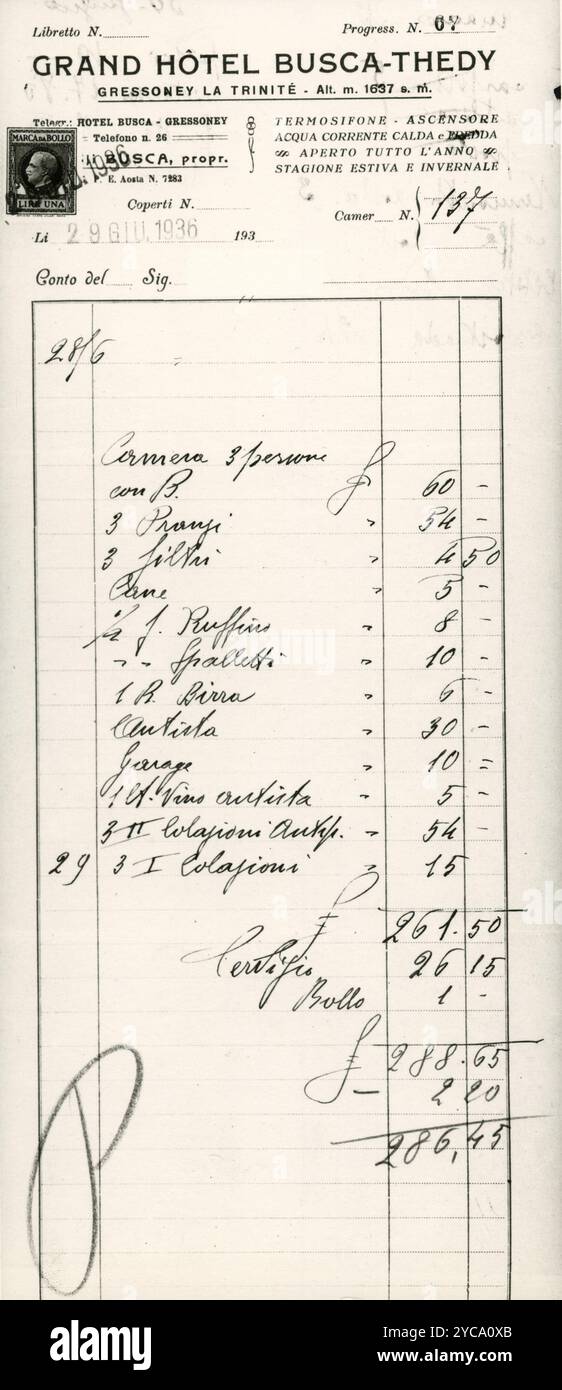 Libretto N.
Progress. N. 67
GRAND HÔTEL BUSCA-THEDY
GRESSONEY LA TRINITÉ - Alt. m. 1637 s. m.
Telegr.: HOTEL BUSCA - GRESSONEY
Telefono n. 26
BUSCA, propr.
E. Aosta N. 7283
TERMOSIFONE - ASCENSORE
ACQUA CORRENTE CALDA e FREDDA
APERTO TUTTO L'ANNO
STAGIONE ESTIVA E INVERNALE
MARCA DA BOLLO
LIRE UNA
1936
Coperti N.
Camer N. 137
Li 29 GIU. 1936 193
Conto del Sig.
28/6
Camera 3 persone
con B. £ 60 -
3 Pranzi " 54 -
3 filtri " 4 50
Cane " 5 -
1/2 f. Ruffino " 8 -
" " Spalletti " 10 -
1 B. Birra " 6 -
Autista " 30 -
Garage " 10 =
1 lt. Vino autista " 5 -
3 II Colazioni Antip. " 54 -
29 3 I Colazioni " 15
£ 261.50
Servizio 26 15
Bollo 1 -
£ 288.65
— 2 20
286,45
alamy
alamy
Image ID: 2YCA0XB
www.alamy.com